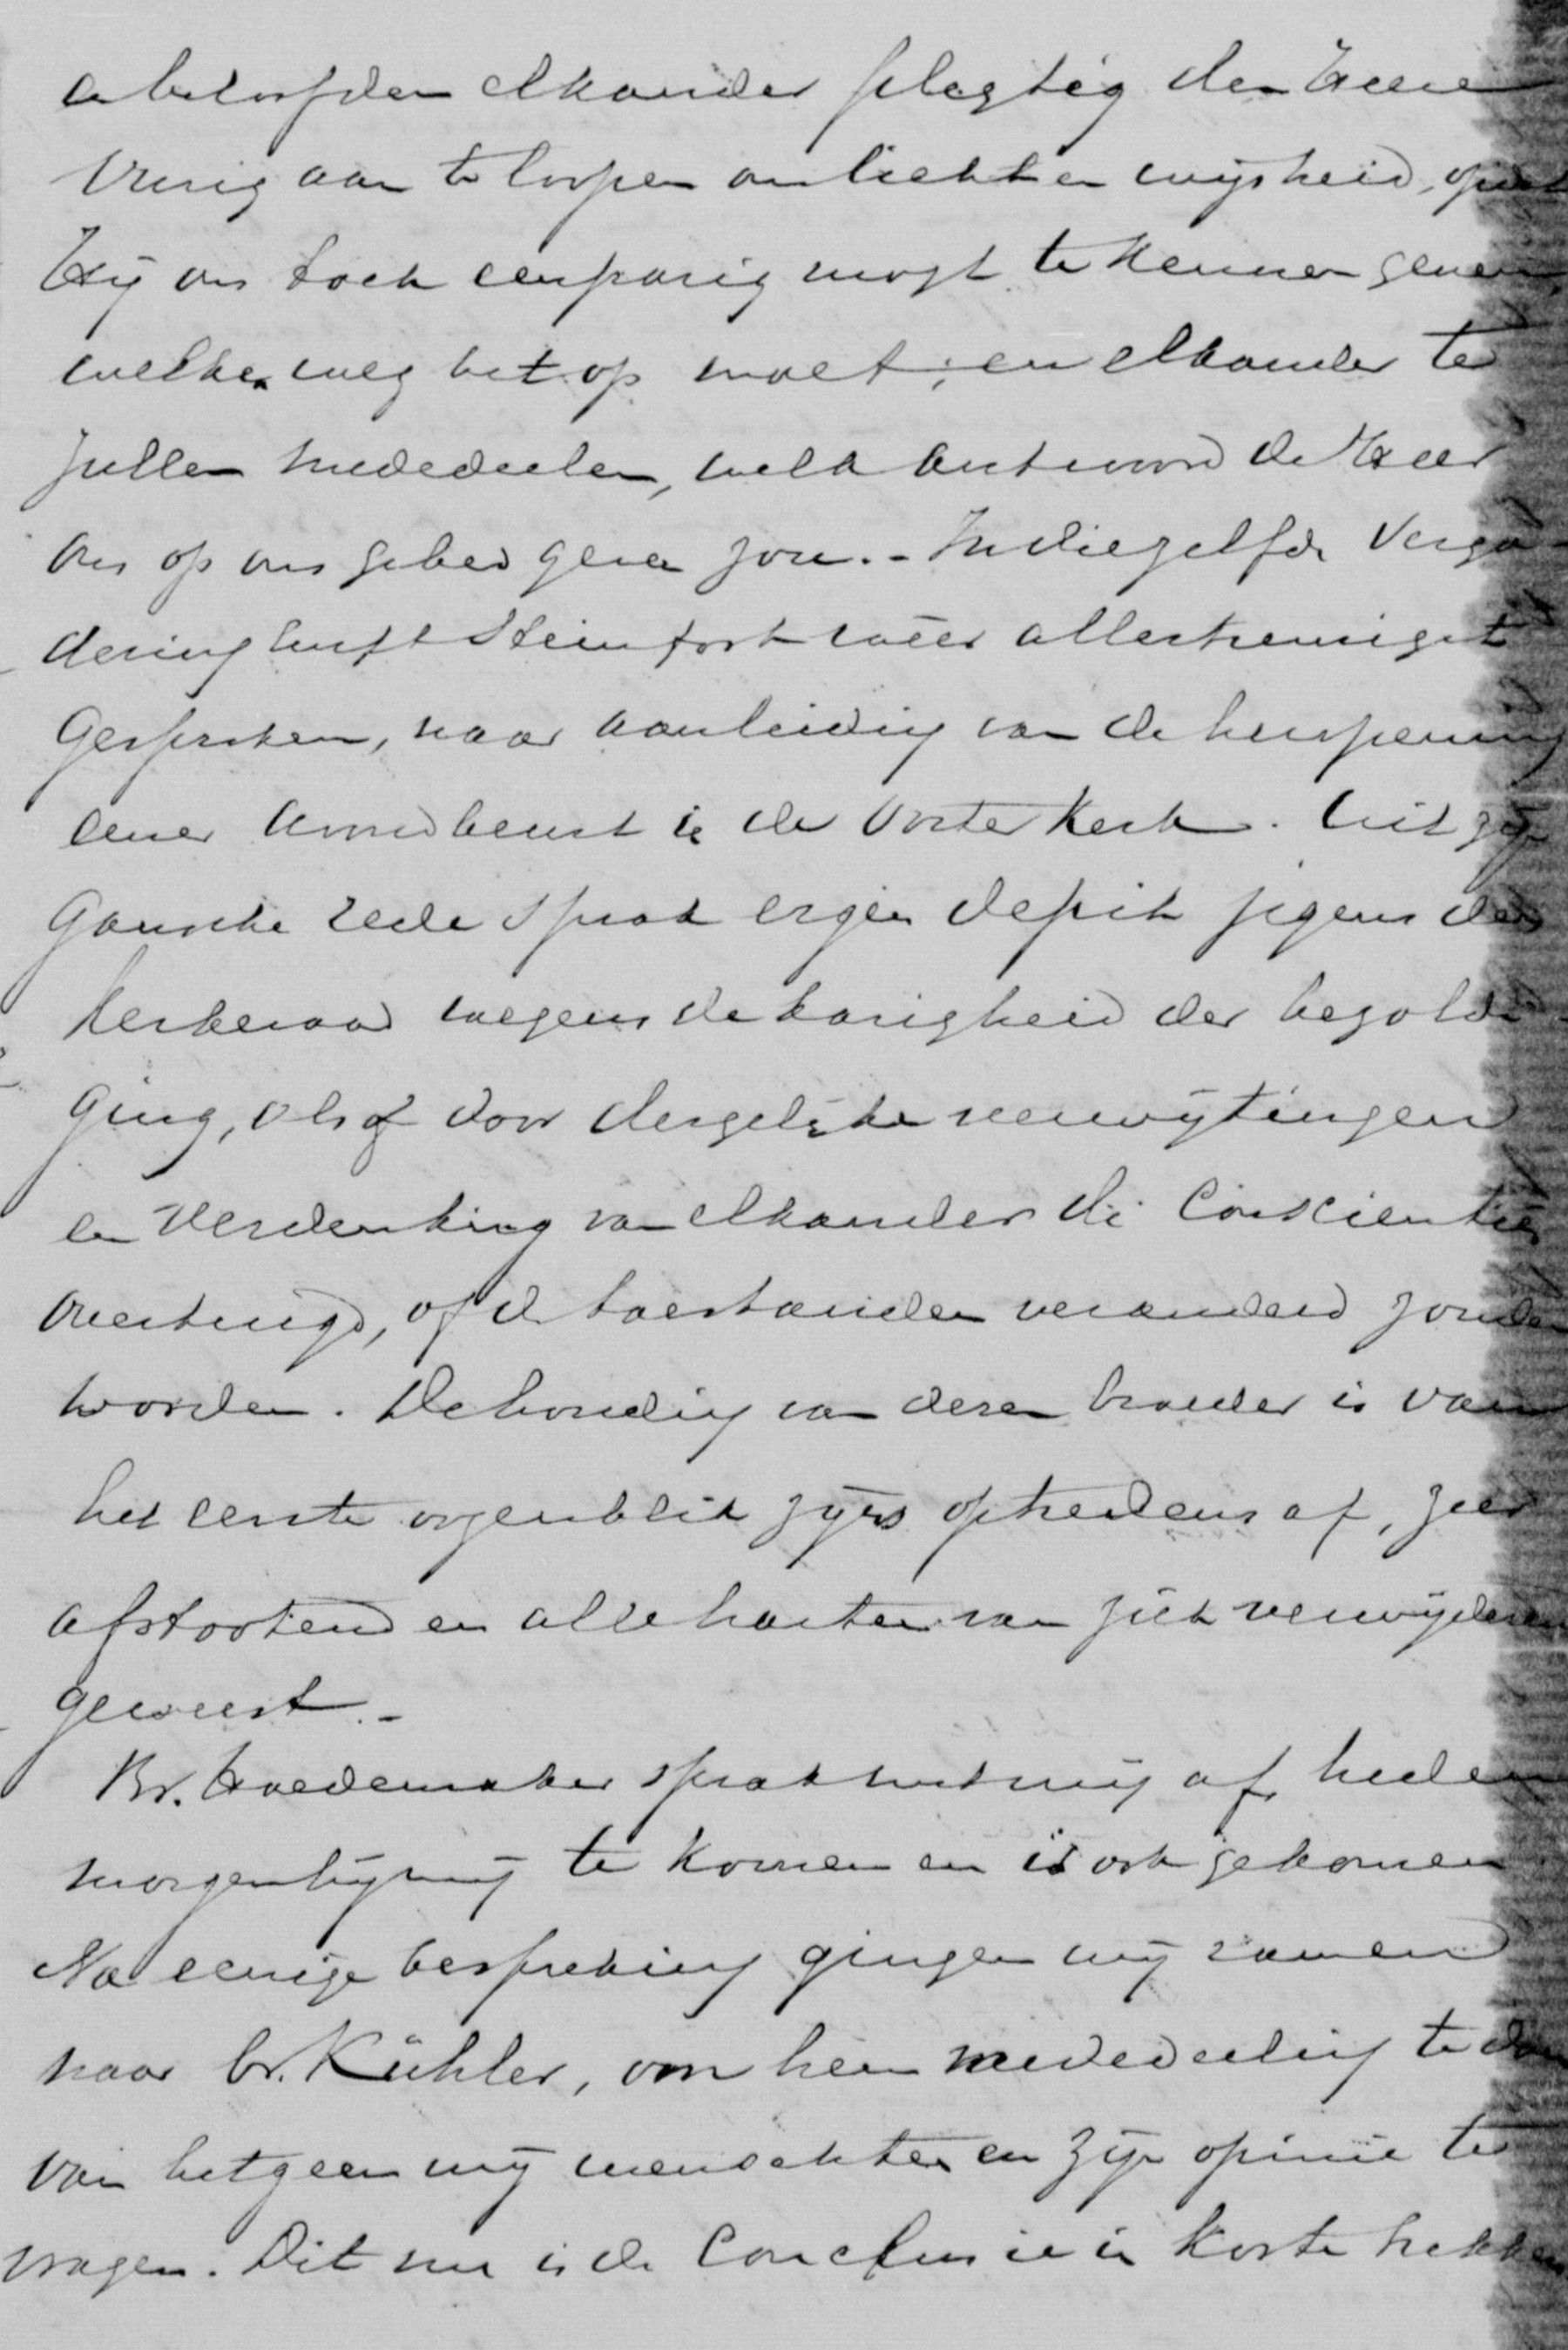 & beloofden elkander plegtig den Heere
vurig aan te loopen om licht en wijsheid, opdat
Hij ons toch eenparig mogt te kennen geven,
welken weg het op moet; en elkander te
zullen mededeelen, welk antwoord de Heer
ons op ons gebed geven zou. - In diezelfde Verga-
dering heeft Steinfort weêr allertreurigst
gesproken, naar aanleiding van de heropening
eener Avondbeurt in de Ooster Kerk. Uit zijn
gansche rede sprak eigen depit jegens den
Kerkeraad wegens de karigheid der bezoldi-
ging, alsof door dergelijke verwijtingen
en verdenking van elkander de Conscientiën
overtuigd, of de toestanden veranderd zouden
worden. De houding van dezen broeder is van
het eerste oogenblik zijns optredens af, zeer
afstootend en alle harten van zich verwijderend
geweest. -
Br. Hoedemaker sprak met mij af, heden
morgen bij mij te komen en is ook gekomen.
Na eenige bespreking gingen wij samen
naar br. Kühler, om hem mededeeling te doen
van hetgeen wij meenden en zijn opinie te
vragen. Dit nu is de Conclusie in korte trekken